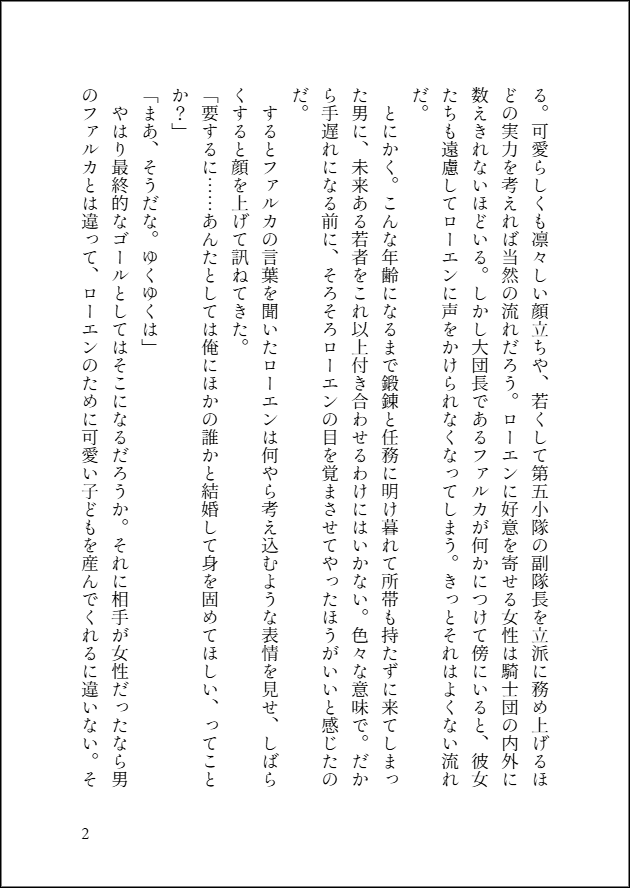 る。可愛らしくも凛々しい顔立ちや、若くして第五小隊の副隊長を立派に務め上げるほ
どの実力を考えれば当然の流れだろう。ローエンに好意を寄せる女性は騎士団の内外に
数えきれないほどいる。しかし大団長であるファルカが何かにつけて傍にいると、彼女
たちも遠慮してローエンに声をかけられなくなってしまう。きっとそれはよくない流れ
だ。
　とにかく。こんな年齢になるまで鍛錬と任務に明け暮れて所帯も持たずに来てしまっ
た男に、未来ある若者をこれ以上付き合わせるわけにはいかない。色々な意味で。だか
ら手遅れになる前に、そろそろローエンの目を覚まさせてやったほうがいいと感じたの
だ。
　するとファルカの言葉を聞いたローエンは何やら考え込むような表情を見せ、しばら
くすると顔を上げて訊ねてきた。
「要するに……あんたとしては俺にほかの誰かと結婚して身を固めてほしい、ってこと
か？」
「まあ、そうだな。ゆくゆくは」
　やはり最終的なゴールとしてはそこになるだろうか。それに相手が女性だったなら男
のファルカとは違って、ローエンのために可愛い子どもを産んでくれるに違いない。そ
2